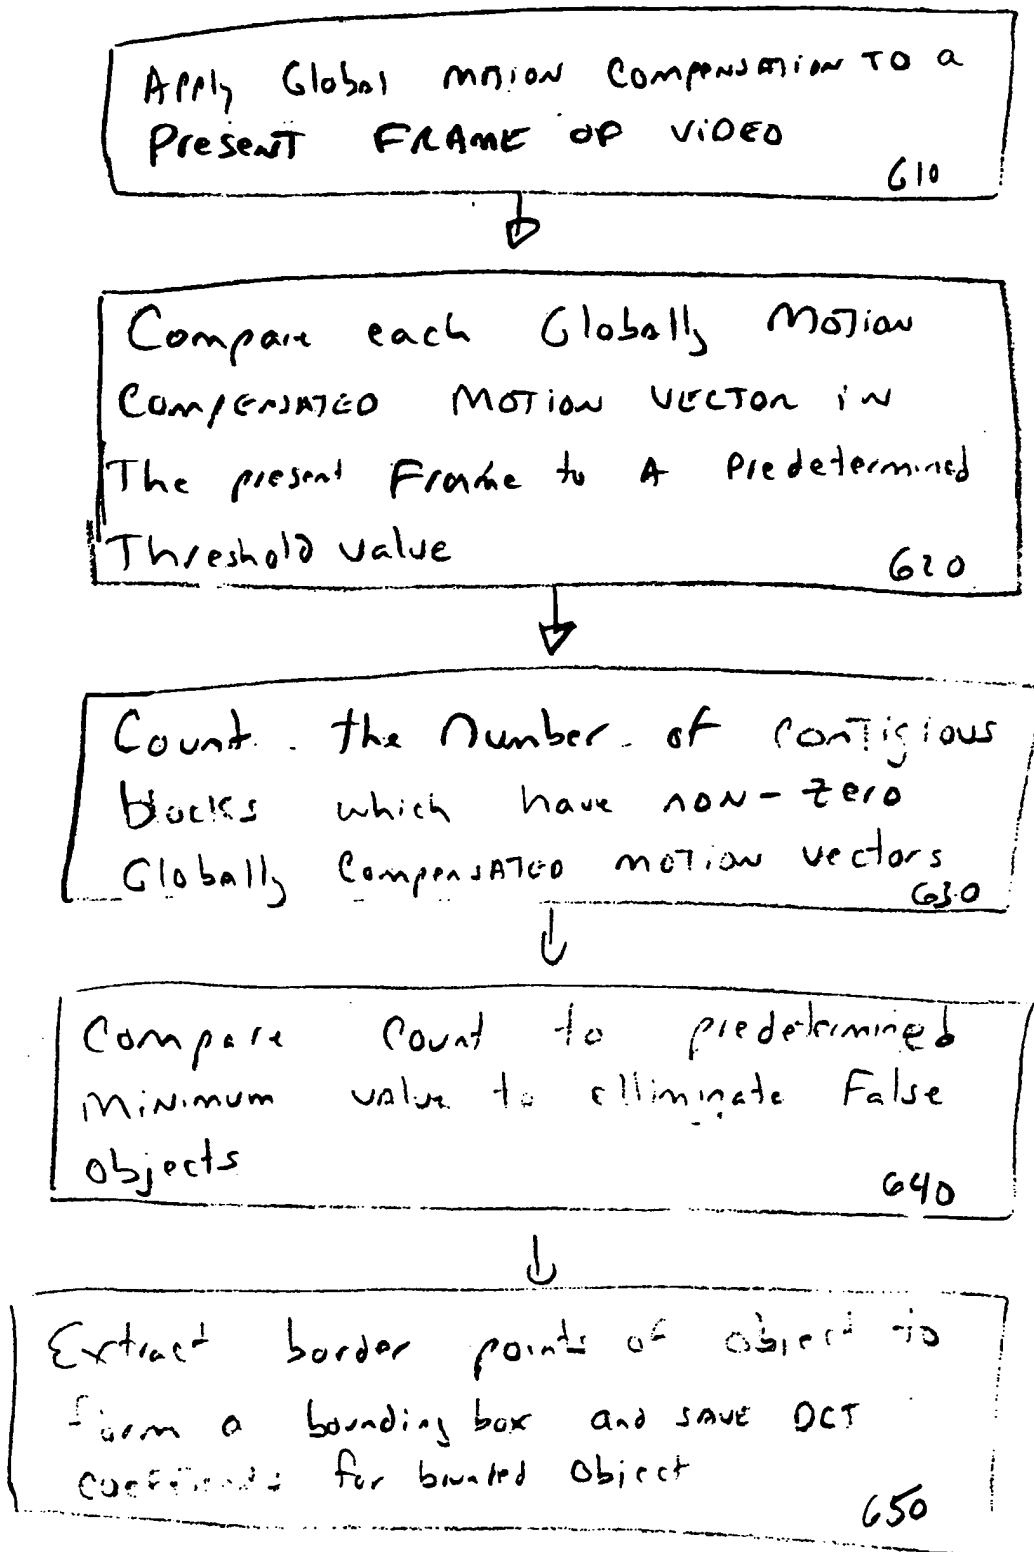 Apply Global Motion Compensation to a
Present Frame of Video
610
Compare each Globally Motion
Compensated Motion Vector in
The present Frame to A Predetermined
Threshold value
620
Count the Number of contigious
blocks which have non-zero
Globally Compensated motion vectors
630
Compare Count to predetermined
Minimum value to elliminate False
objects
640
Extract border points of object to
form a bounding box and save DCT
coefficients for bounded Object
650